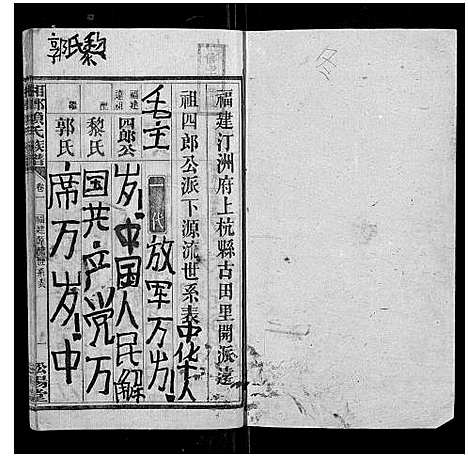 冬
郭氏黎
福建汀洲府上杭縣古田里開派遠
祖四郎公派下源流世系表
中华人
一代
放军万岁!
福建遠祖
四郎公
岁!中国人民解
毛主
黎氏
国共产党万
郭氏
席万岁!中
氏族譜
卷一
福建
世系表
堂